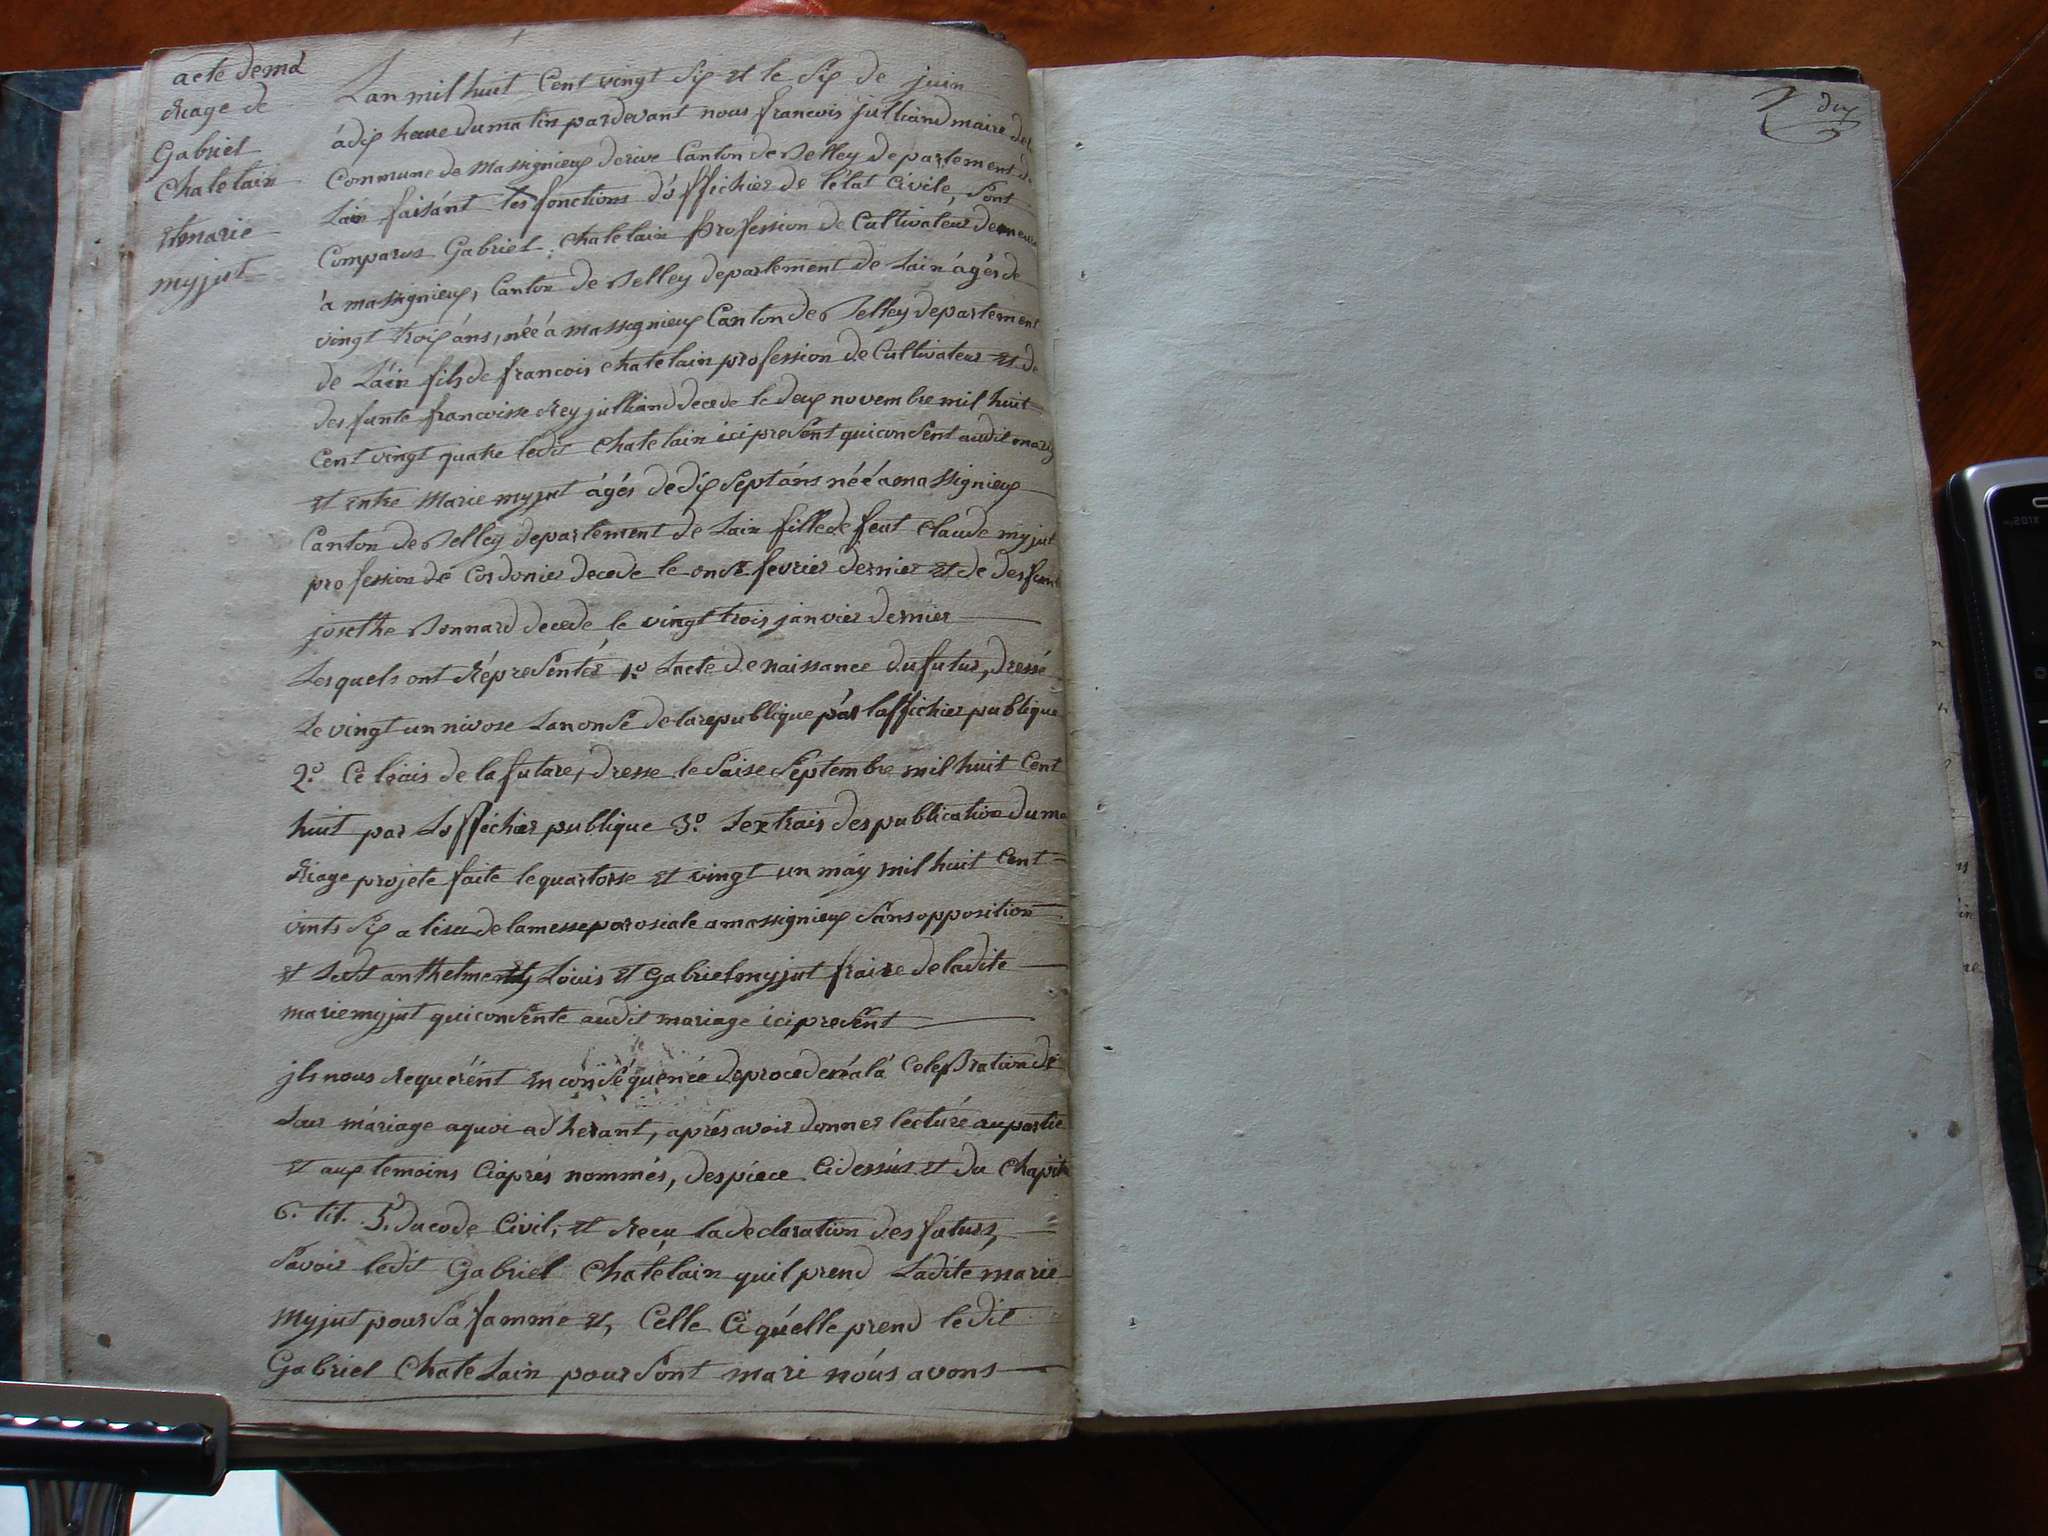 acte de ma
riage de
Gabriel
Chatelain
et marie
myjut
Lan mil huit Cent vingt Six et le Six de juin
á dix heure du matin pardevant nous francois julliand maire dela
Commune de Massignieux de rive Canton de Belley departement de
Lain faisánt les fonctions d'offichier de létat Civile, Sont
Comparus Gabriel Chatelain Profession de Cultivateur demeur
à massignieux, Canton de Belley departement de Lain ágés de
vingt troix áns, néé à massignieux Canton de Belley departement
de Láin fils de francois chatelain profession de Cultivateur et de
desfunte francoisse Rey julliand decede le deux novembre mil huit
Cent vingt quatre ledit Chatelain ici presént qui consent audit mariag
et entre Marie myjut ágés de dix Sept áns néé a massignieux
Canton de Belley departement de Lain fille de feut Claude myjut
profession dé Cordonier decede le onse fevrier dernier et de desfunt
josethe Bonnard decede le vingt trois janvier dernier
Lesquels ont Répresentér 1º Lacte de naissance du futur, dressé
Le vingt un nivose Lan onse de la republique pár laffichier publique
2º Celuis de la future, dresse le Saise Septembre mil huit Cent
huit par Loffichier publique 3º Lextrais des publication du ma
Riage projete faite le quartorse et vingt un máy mil huit Cent
vints Six a lisu de la messe parosiale a massignieux Sans opposition
et Ledit anthelme Louis et Gabriel myjut fraire de ladite
marie myjut qui consente audit mariage ici present
jls nous Requérént en conséquence de procedere á lá Celebration de
Leur máriage a quoi adherant, aprés avoir donner lecturé au partie
et aux temoins Ciaprés nommés, des piéce Cidessús et du Chapitr
6. tit. 5. du code Civil, et Recu la declaration des futurs,
Savoir ledit Gabriel Chatélain quil prend Ladite marie
Myjut pour Sa famme et, Celle Ci quélle prend ledit
Gabriel Chatelain pour Sont mari nóus avons
dix